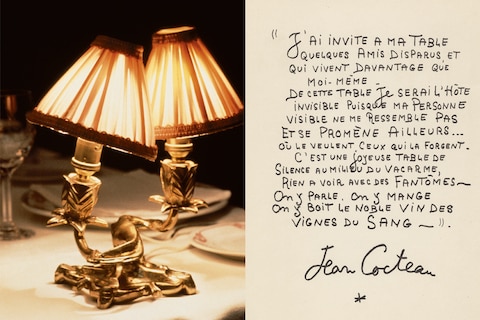 « J'AI INVITE A MA TABLE
QUELQUES AMIS DISPARUS ET
QUI VIVENT DAVANTAGE QUE
MOI-MÊME.
DE CETTE TABLE JE SERAI L'HÔTE
INVISIBLE PUISQUE MA PERSONNE
VISIBLE NE ME RESSEMBLE PAS
ET SE PROMÈNE AILLEURS...
OÙ LE VEULENT CEUX QUI LA FORGENT.
C'EST UNE JOYEUSE TABLE DE
SILENCE AU MILIEU DU VACARME,
RIEN A VOIR AVEC DES FANTÔMES —
ON Y PARLE. ON Y MANGE
ON Y BOIT LE NOBLE VIN DES
VIGNES DU SANG — ».
Jean Cocteau
*